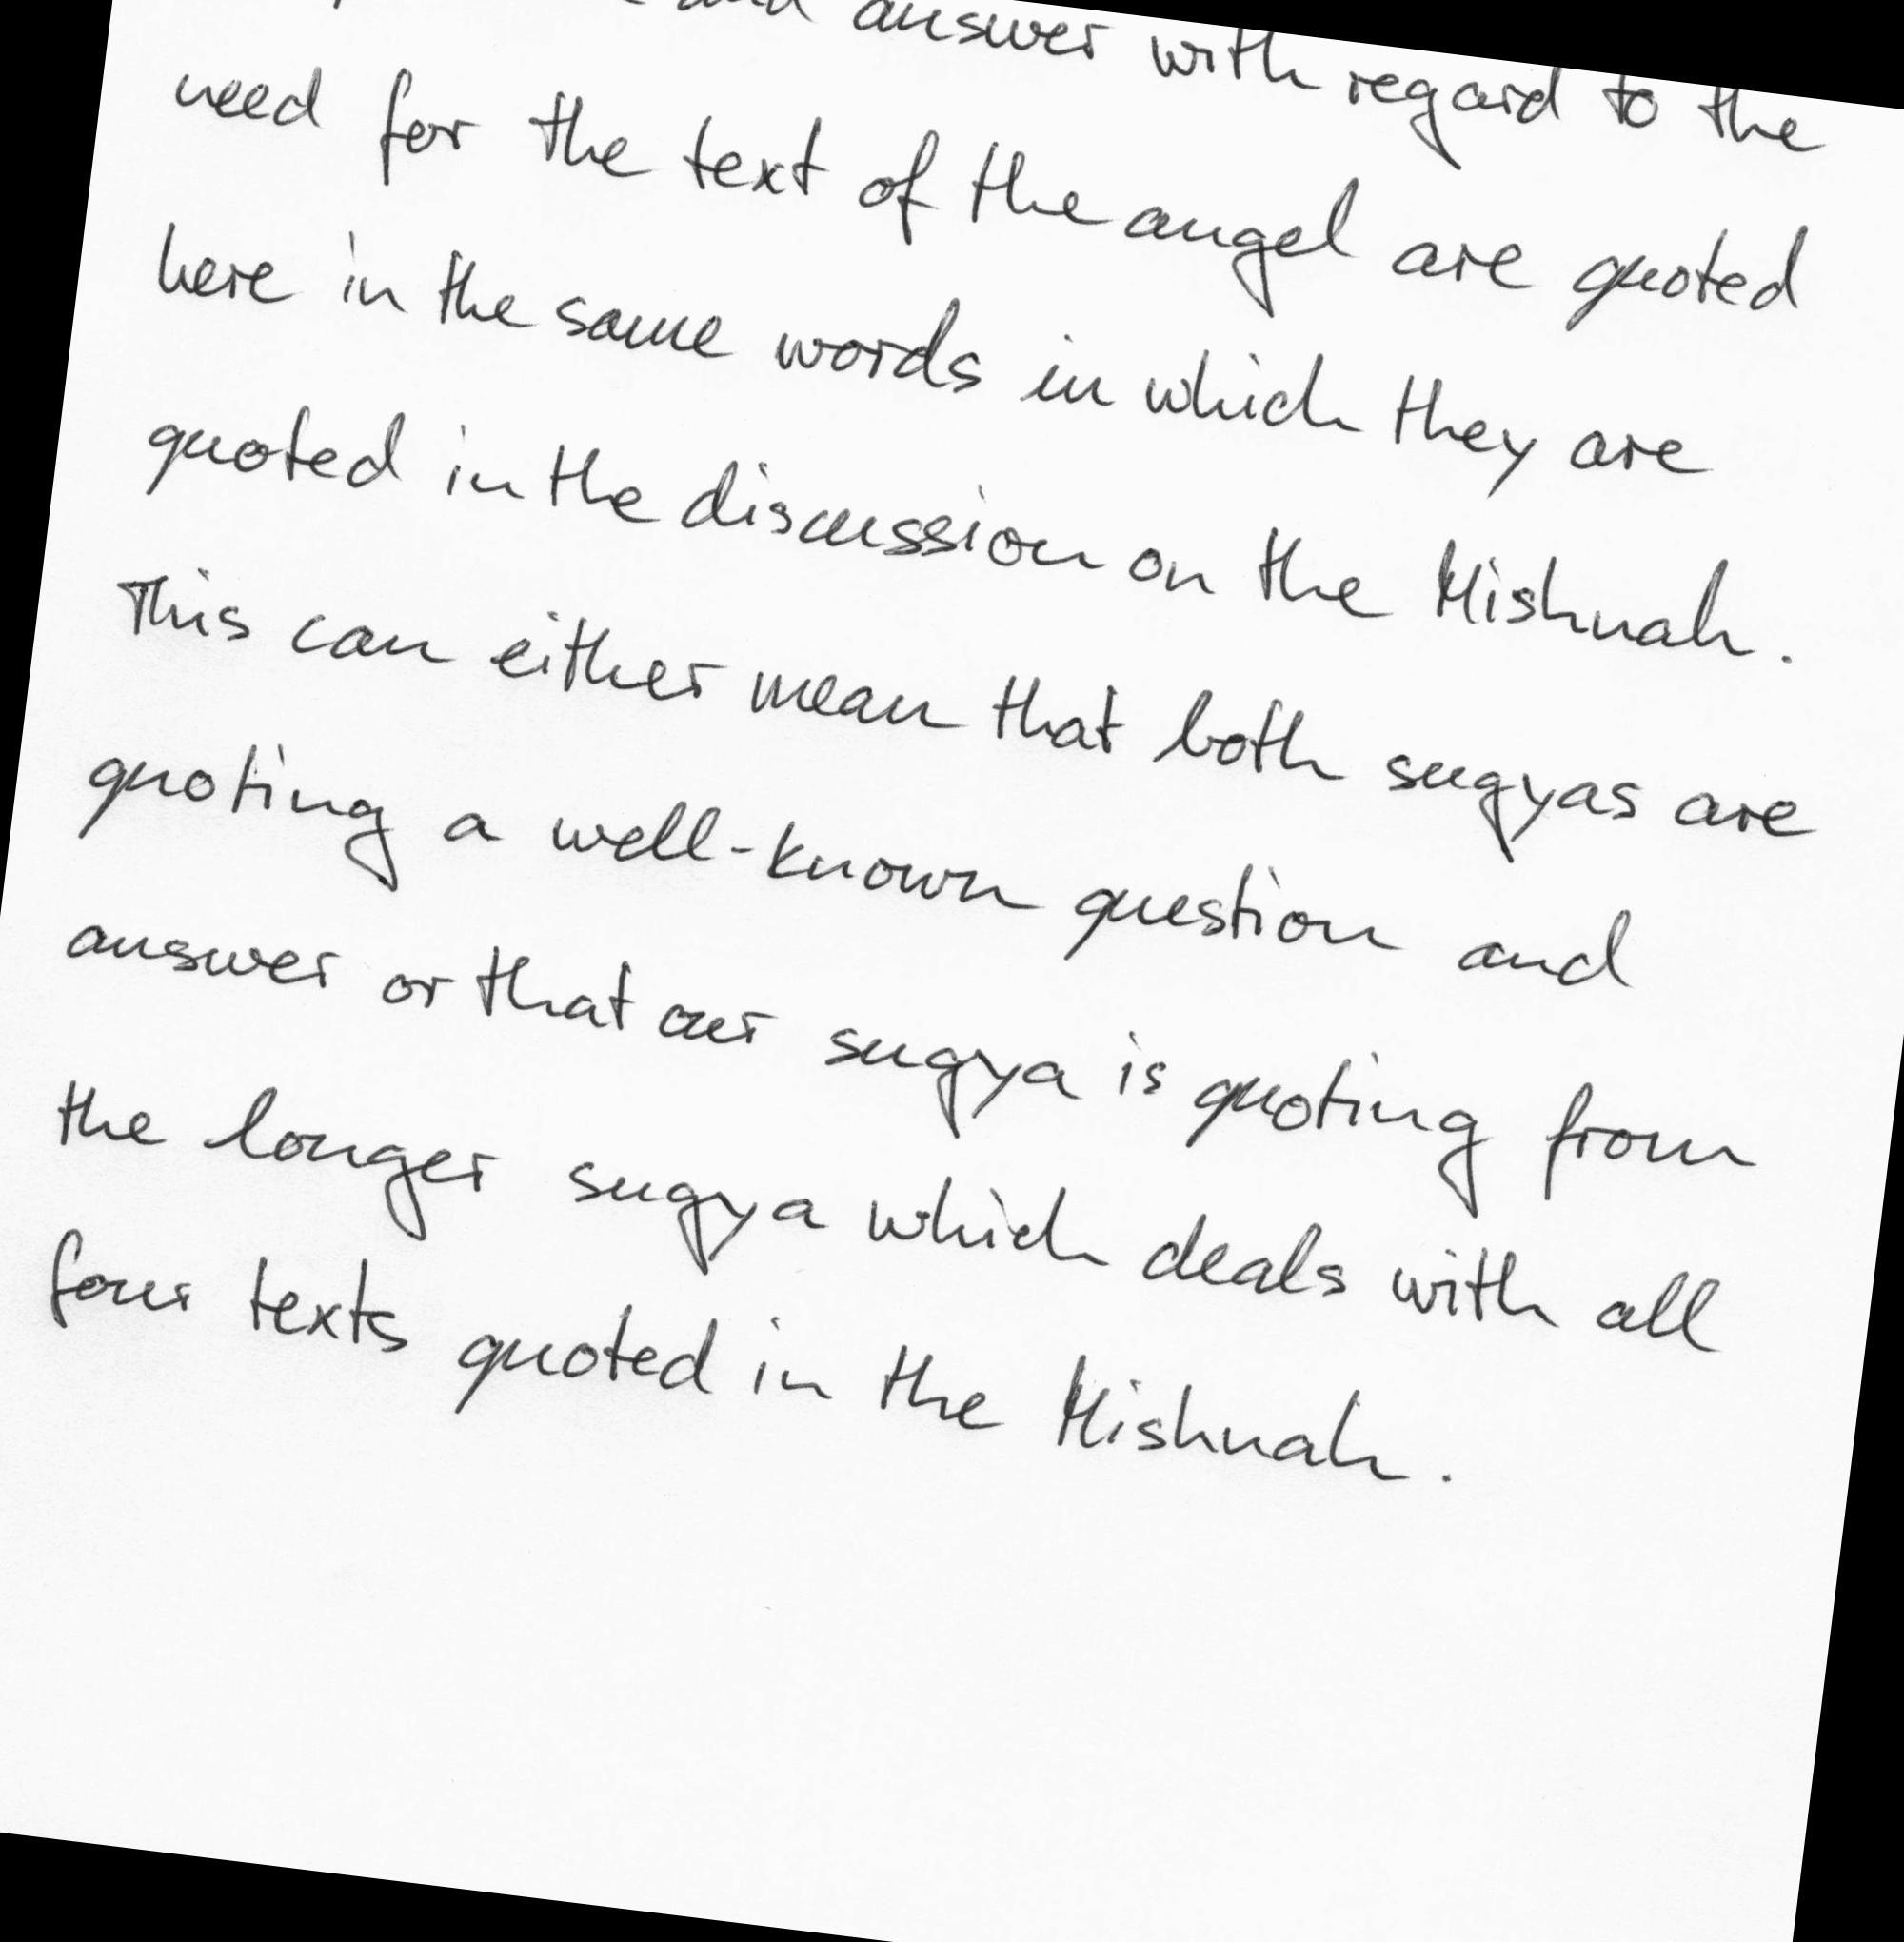 and answer with regard to the
need for the text of the angel are quoted
here in the same words in which they are
quoted in the discussion on the Mishnah.
This can either mean that both sugyas are
quoting a well-known question and
answer or that our sugya is quoting from
the longer sugya which deals with all
four texts quoted in the Mishnah.